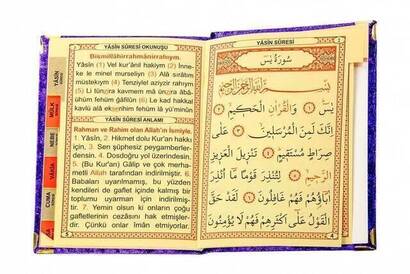 YÂSÎN SÛRESİ OKUNUŞU
Bismillâhirrahmânirrahıym.
Yâsîn (1) Vel kur'ânil hakiym (2) İnne-
ke le minel murseliyn (3) Alâ sırâtım
müstekıym (4) Tenziylel aziyzirrahıym
(5) Li tünzira kavmem mâ ünzira âbâ-
ühüm fehüm ğâfilûn (6) Le kad hakkal
kavlü alâ ekserihim fehüm lâ yü'minûn
YÂSÎN SÛRESİ ANLAMI
Rahman ve Rahim olan Allah'ın İsmiyle.
1. Yâsîn, 2. Hikmet dolu Kur'an hakkı
için, 3. Sen şüphesiz peygamberler-
densin. 4. Dosdoğru yol üzerindesin.
5. (Bu Kur'an) Gâlip ve çok merha-
metli Allah tarafından indirilmiştir. 6.
Babaları uyarılmamış, bu yüzden
kendileri de gaflet içinde kalmış bir
toplumu uyarman için indirilmiş-
tir. 7. Yemin olsun ki onların çoğu
gafletlerinin cezasını hak etmişler-
dir. Çünkü onlar îman etmiyorlar.
YÂSÎN
MÜLK
NEBE
VÂKIA
CUMA
YÂSÎN SÛRESİ
سُورَةُ يٰسٓ
بِسْمِ اللّٰهِ الرَّحْمٰنِ الرَّحِيمِ
يٰسٓ ﴿١﴾ وَالْقُرْاٰنِ الْحَكِيمِ ﴿٢﴾
اِنَّكَ لَمِنَ الْمُرْسَلِينَ ﴿٣﴾ عَلٰى
صِرَاطٍ مُسْتَقِيمٍ ﴿٤﴾ تَنْزِيلَ الْعَزِيزِ
الرَّحِيمِ ﴿٥﴾ لِتُنْذِرَ قَوْمًا مَٓا اُنْذِرَ
اٰبَٓاؤُهُمْ فَهُمْ غَافِلُونَ ﴿٦﴾ لَقَدْ حَقَّ
الْقَوْلُ عَلٰٓى اَكْثَرِهِمْ فَهُمْ لَا يُؤْمِنُونَ